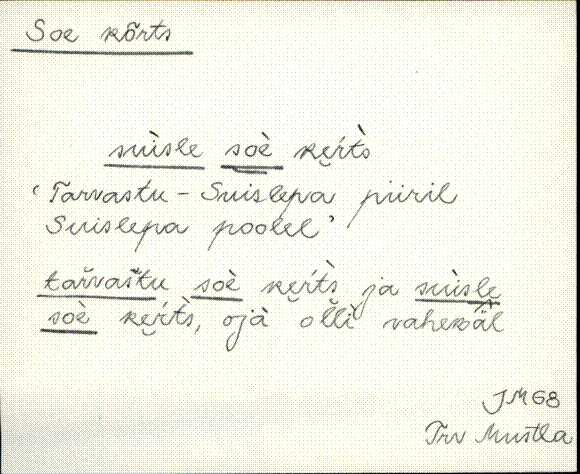 Soe kõrts
sùisle soè ke̮ŕt̀s
‘Tarvastu - Suislepa piiril
Suislepa poolel’
tařvaštu soè ke̮ŕt̀s ja sùisle̮
soè ke̮ŕt̀s, ojà olĺì vahekäl
JM68
Trv Mustla